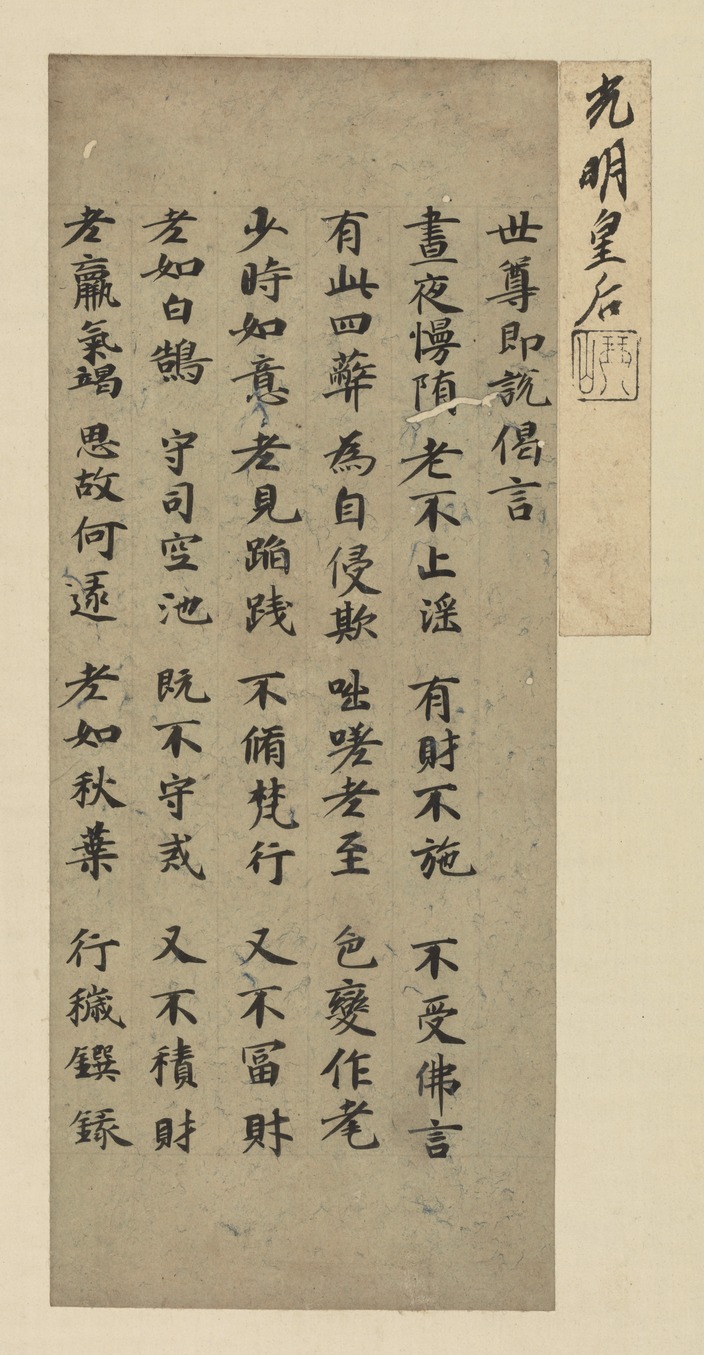 光明皇后
琴山
世尊即說偈言
晝夜慢陏 老不上滛 有財不施 不受佛言
有此四弊 為自侵欺 咄嗟老至 色變作耄
少時如意 老見蹈踐 不脩梵行 又不冨財
老如白鵠 守司空池 既不守戒 又不積財
老羸氣竭 思故何逮 老如秋葉 行穢鏍錄